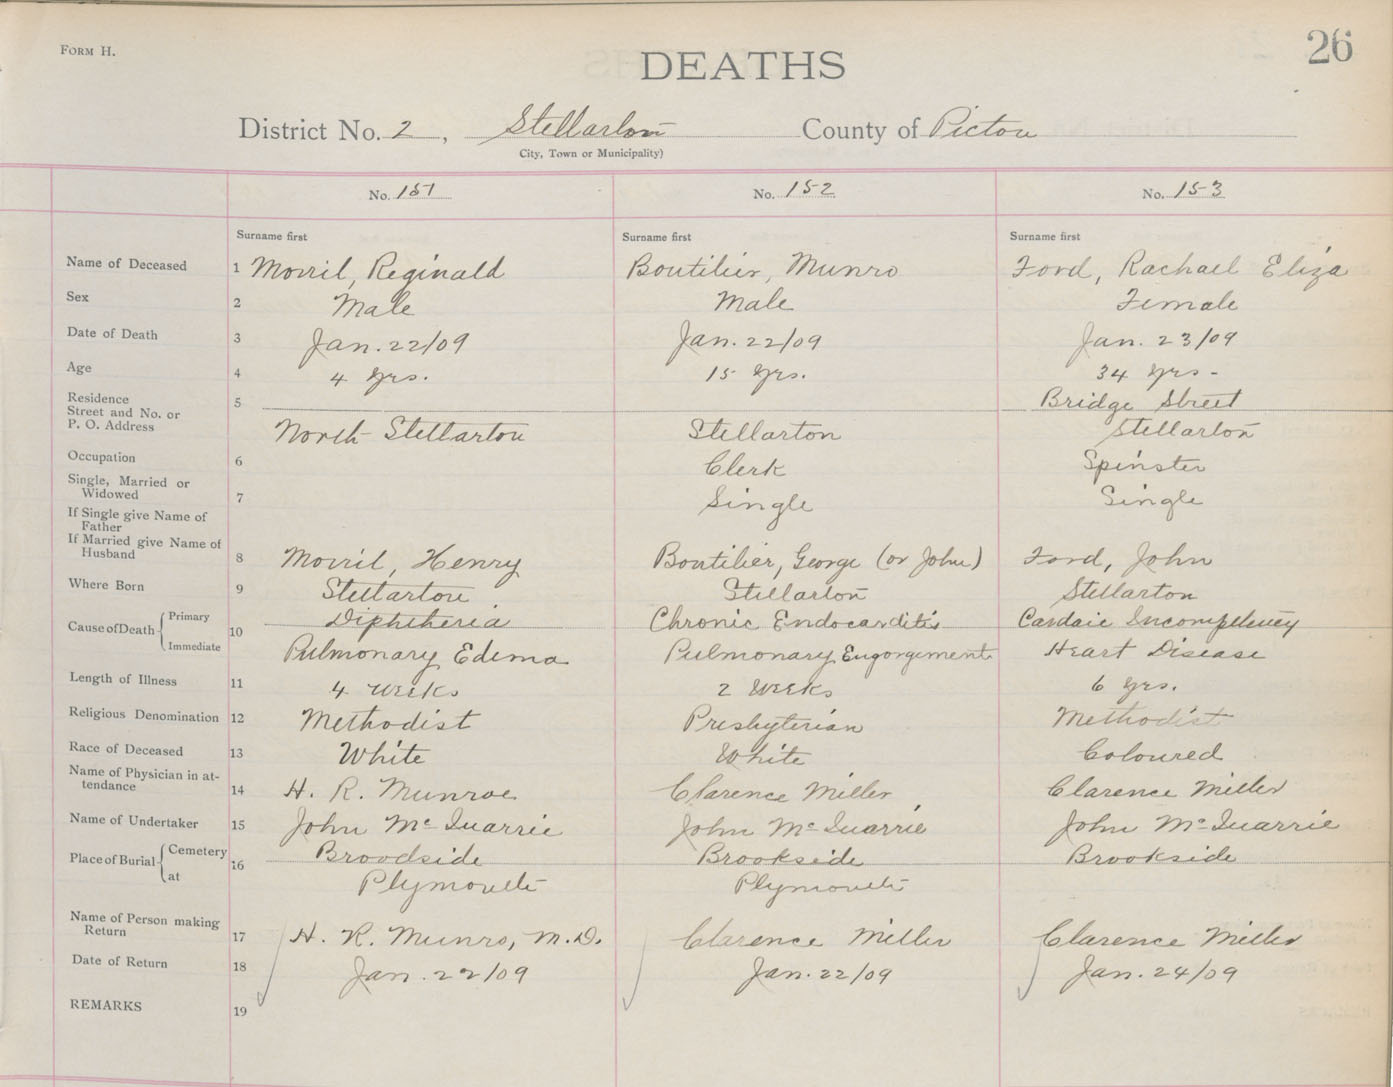 FORM H.
26
DEATHS
District No. 2, Stellarton County of Pictou
City, Town or Municipality)
No. 151 No. 152 No. 153
Surname first Surname first Surname first
Name of Deceased 1 Morril, Reginald Boutilier, Munro Ford, Rachael Eliza
Sex 2 Male Male Female
Date of Death 3 Jan. 22/09 Jan. 22/09 Jan. 23/09
Age 4 4 yrs. 15 yrs. 34 yrs-
Residence 5 Bridge Street
Street and No. or
P. O. Address North Stellarton Stellarton Stellarton
Occupation 6 Clerk Spinster
Single, Married or
Widowed 7 Single Single
If Single give Name of
Father
If Married give Name of
Husband 8 Morril, Henry Boutilier, George (or John) Ford, John
Where Born 9 Stellarton Stellarton Stellarton
Cause of Death Primary 10 Diphtheria Chronic Endocarditis Cardaic Incompetency
Immediate Pulmonary Edema Pulmonary Engorgement Heart Disease
Length of Illness 11 4 weeks 2 weeks 6 yrs.
Religious Denomination 12 Methodist Presbyterian Methodist
Race of Deceased 13 White White Coloured
Name of Physician in at-
tendance 14 H. R. Munroe Clarence Miller Clarence Miller
Name of Undertaker 15 John McQuarrie John McQuarrie John McQuarrie
Place of Burial Cemetery 16 Broodside Brookside Brookside
at Plymouth Plymouth
Name of Person making
Return 17 H. R. Munro, M.D. Clarence Miller Clarence Miller
Date of Return 18 Jan. 22/09 Jan. 22/09 Jan. 24/09
REMARKS 19